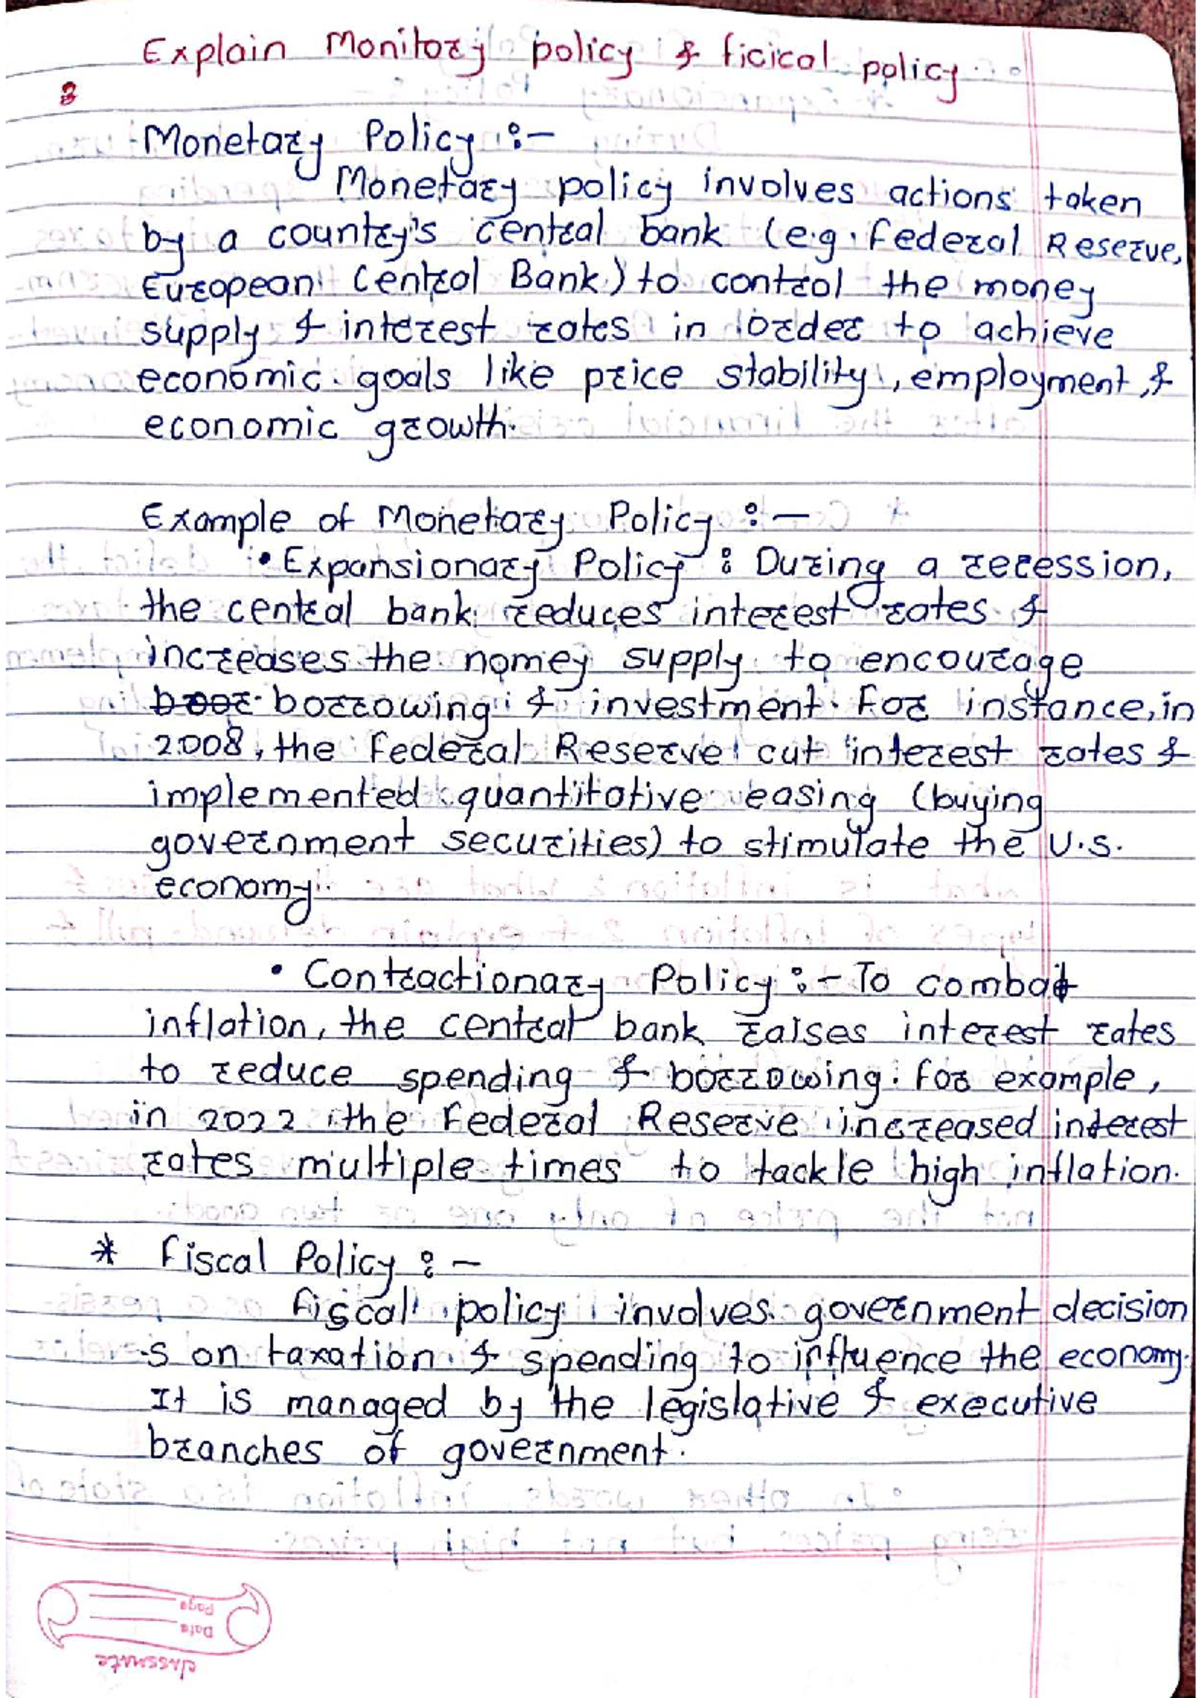 Explain Monitory policy & ficical policy.
3
Monetary Policy :-
Monetary policy involves actions taken
by a country's central bank (e.g. Federal Reserve,
European Central Bank) to control the money
supply & interest rates in order to achieve
economic goals like price stability, employment, &
economic growth.
Example of Monetary Policy :-
• Expansionary Policy : During a recession,
the central bank reduces interest rates &
increases the nomey supply to encourage
boor borrowing & investment. For instance, in
2008, the Federal Reserve cut interest rates &
implemented quantitative easing (buying
government securities) to stimulate the U.S.
economy.
• Contractionary Policy :- To combat
inflation, the central bank raises interest rates
to reduce spending & borrowing. For example,
in 2022 the Federal Reserve increased interest
rates multiple times to tackle high inflation.
* Fiscal Policy :-
Fiscal policy involves government decision
-s on taxation & spending to influence the economy.
It is managed by the legislative & executive
branches of government.
classmate
Date
Page